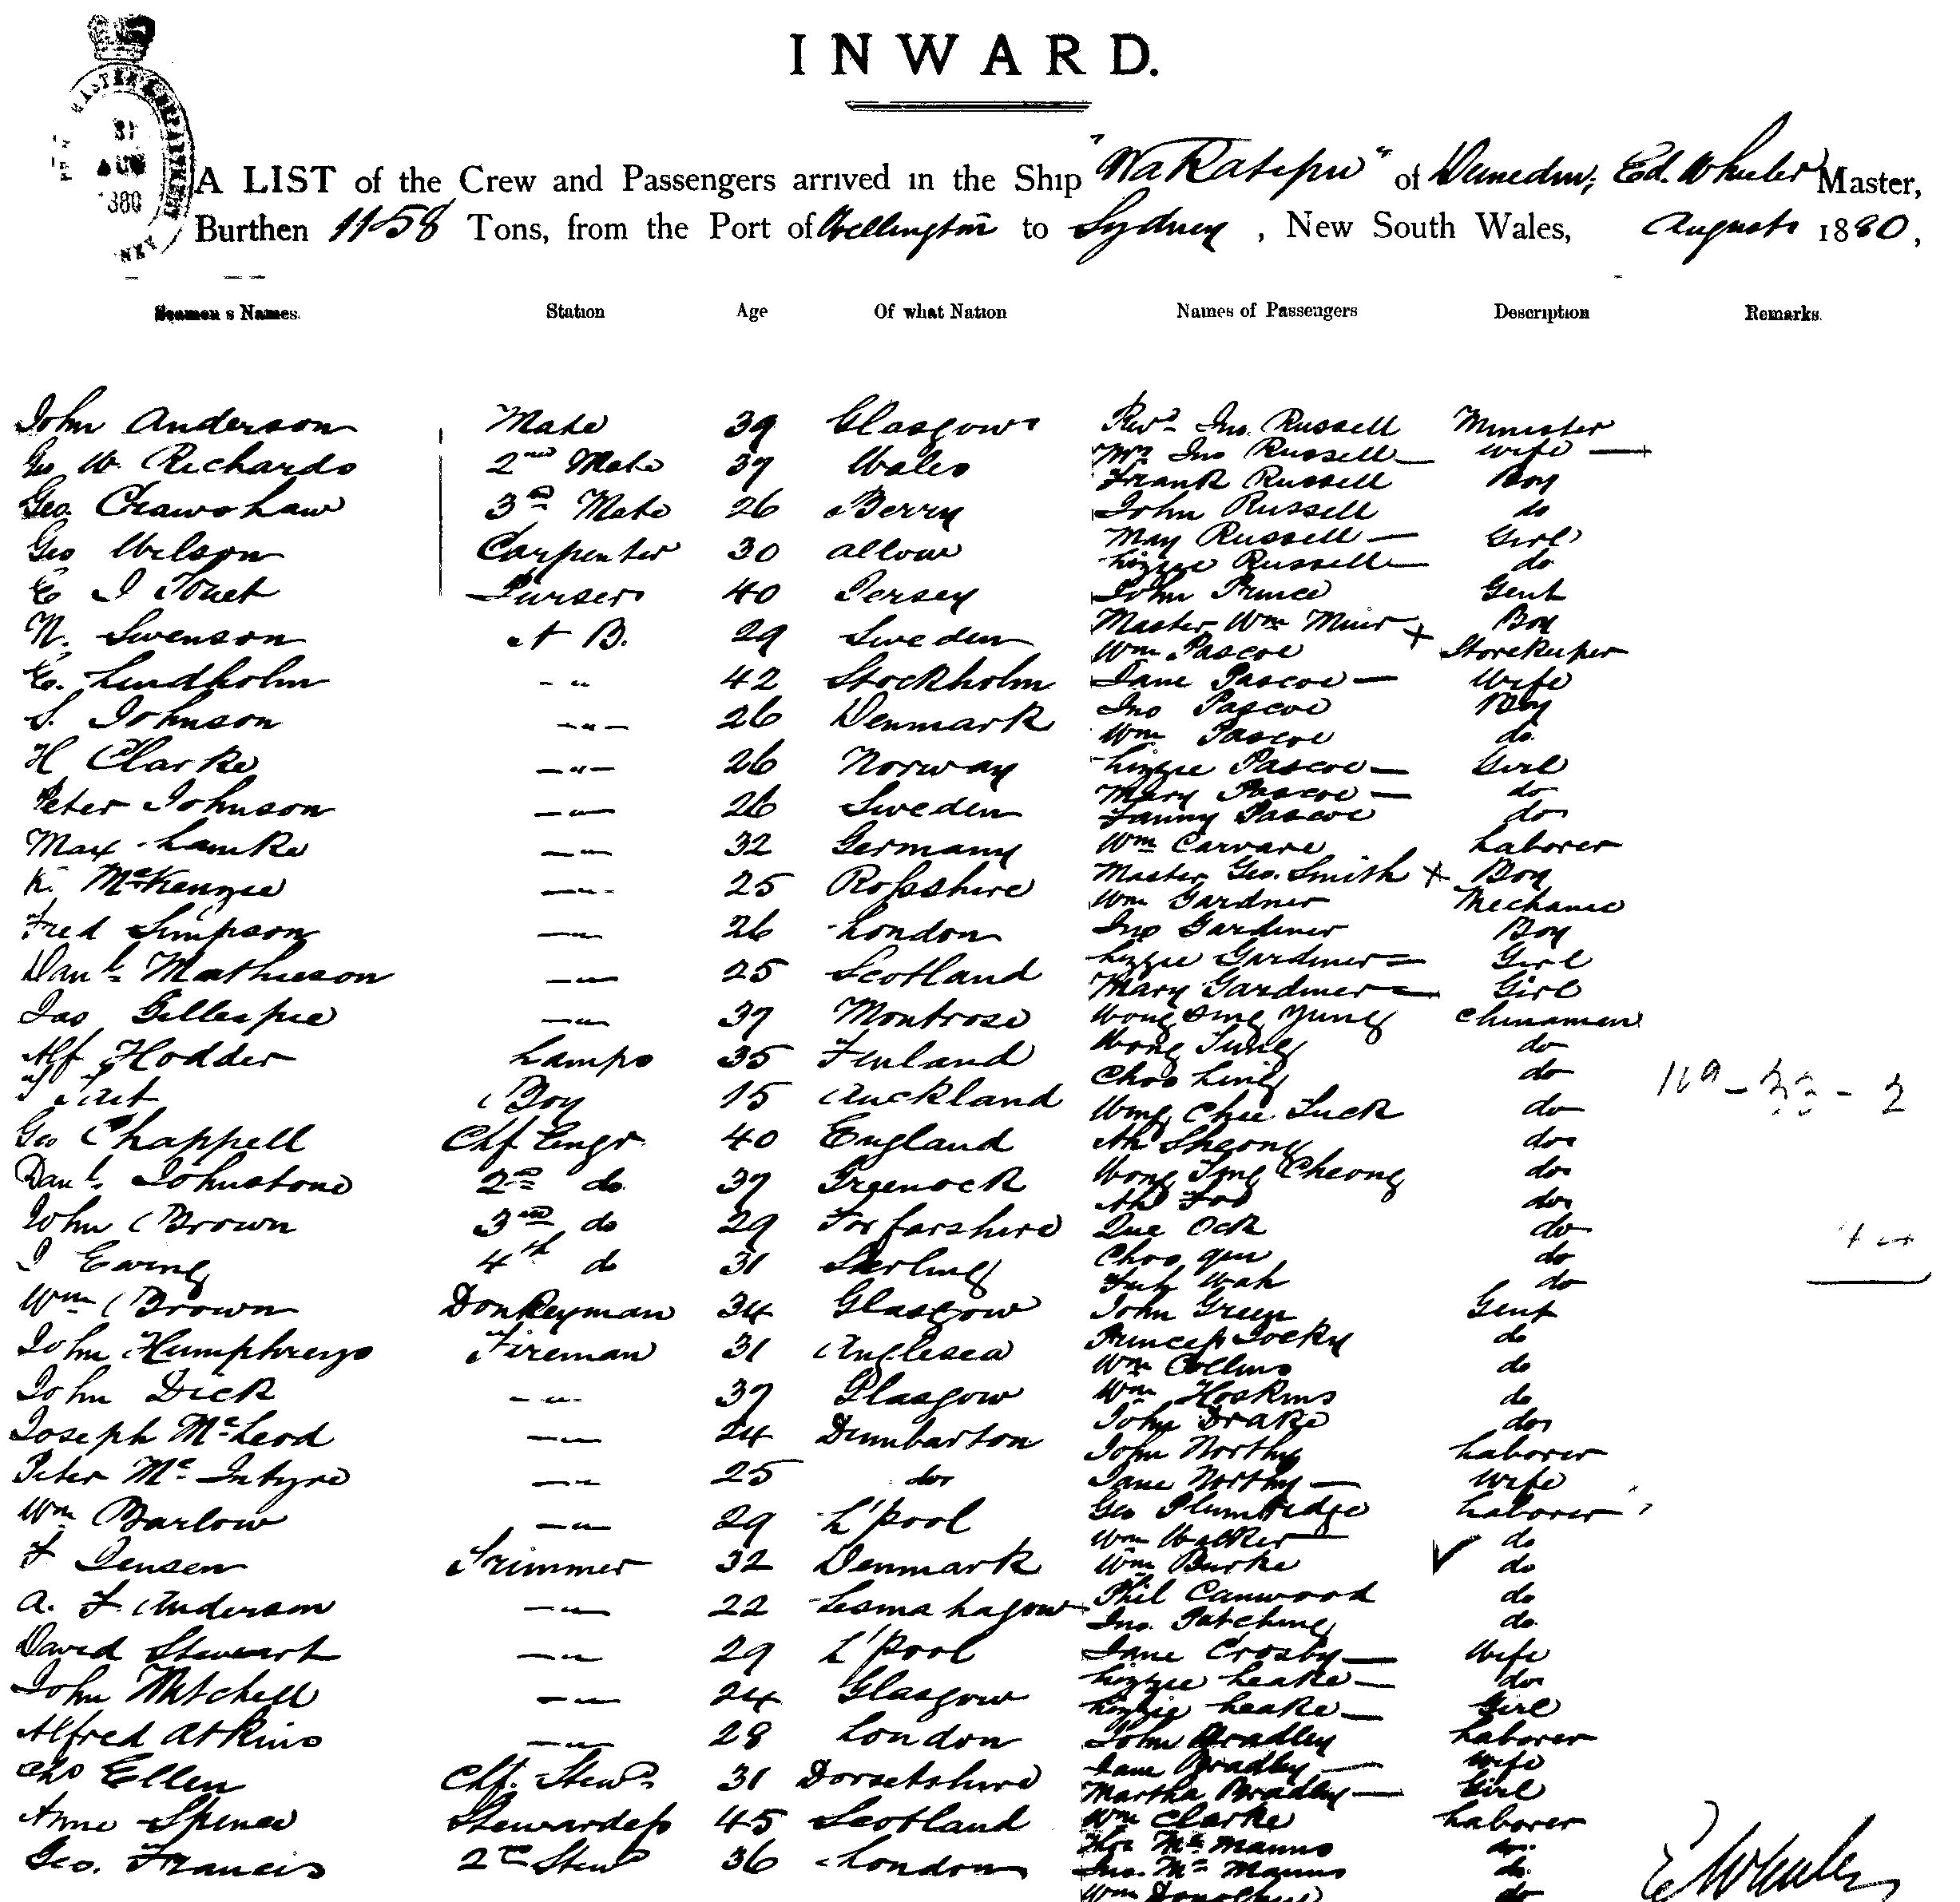 INWARD.
31
AUG
1880
A LIST of the Crew and Passengers arrived in the Ship "Wakatipu" of Dunedin, Ed. Wheeler Master,
Burthen 1158 Tons, from the Port of Wellington to Sydney, New South Wales, August 1880,
Seamen s Names. Station Age Of what Nation Names of Passengers Description Remarks.
John Anderson Mate 39 Glasgow Revd Jno. Russell Minister
Geo W. Richards 2nd Mate 37 Wales Mrs Jno Russell — wife —
Frank Russell Boy
Geo. Crawshaw 3rd Mate 26 Berry John Russell do
Geo Wilson Carpenter 30 Alloa May Russell — Girl
Lizzie Russell — do
E J Purser 40 Jersey John Prince Gent
N. Swenson A B. 29 Sweden Master Wm Muir x Boy
Wm Pascoe Storekeeper
E. Lindholm - " 42 Stockholm Jane Pascoe — Wife
S. Johnson — " — 26 Denmark Jno Pascoe Boy
Wm Pascoe do
H Clarke — " — 26 Norway Lizzie Pascoe — Girl
Peter Johnson — " — 26 Sweden Mary Pascoe — do
Fanny Pascoe do
Max Lamke — " — 32 Germany Wm Laborer
K. McKenzie — " — 25 Rossshire Master Geo. Smith x Boy
Wm Gardner Mechanic
Fred Simpson — " — 26 London Jno Gardiner Boy
Danl Mathieson — " — 25 Scotland Lizzie Gardiner — Girl
Mary Gardiner — Girl
Jas Gillespie — " — 37 Montrose Wong Sing Yung Chinamen
Alf Hodder Lamps 35 Finland Wong Tung do
Choo Ling do
Tait Boy 15 Auckland Wing Chee Luck do
Geo Chappell Chf Engr. 40 England Ah Sheong do
Danl Johnstone 2nd do 37 Greenock Wong Sing Cheong do
Ah Foo do
John Brown 3rd do 29 Forfarshire Que Ock do
J Ewing 4th do 31 Sterling Choo do
Wah do
Wm Brown Donkeyman 34 Glasgow John Green Gent
John Humphreys Fireman 31 Anglesea Jocky do
Wm Collins do
John Dick — " — 37 Glasgow Wm Hoskins do
Joseph McLeod — " — 24 Dumbarton John Drake do
John Northy Laborer
Peter McIntyre — " — 25 do Jane Northy — Wife
Wm Barlow — " — 29 L'pool Geo Plumridge Laborer
Wm Walker do
F Jensen Trimmer 32 Denmark Wm Burke ✓ do
A. F. Anderson — " — 22 Lesmahagow Phil Canwood do
Jno. Patching do
David Stewart — " — 29 L'pool Jane Crosby — Wife
John Mitchell — " — 24 Glasgow Lizzie Leake — do
Lizzie Leake — Girl
Alfred Atkins — " — 28 London John Bradley Laborer
Jane Bradley — wife
Chs Ellen Chf. Stewd 31 Dorsetshire Martha Bradley — Girl
Anne Spence Stewardess 45 Scotland Wm Clarke Laborer
Thos McManus do
Geo. Francis 2nd Stewd 36 London Jno. McManus do
Wm do
E Wheeler